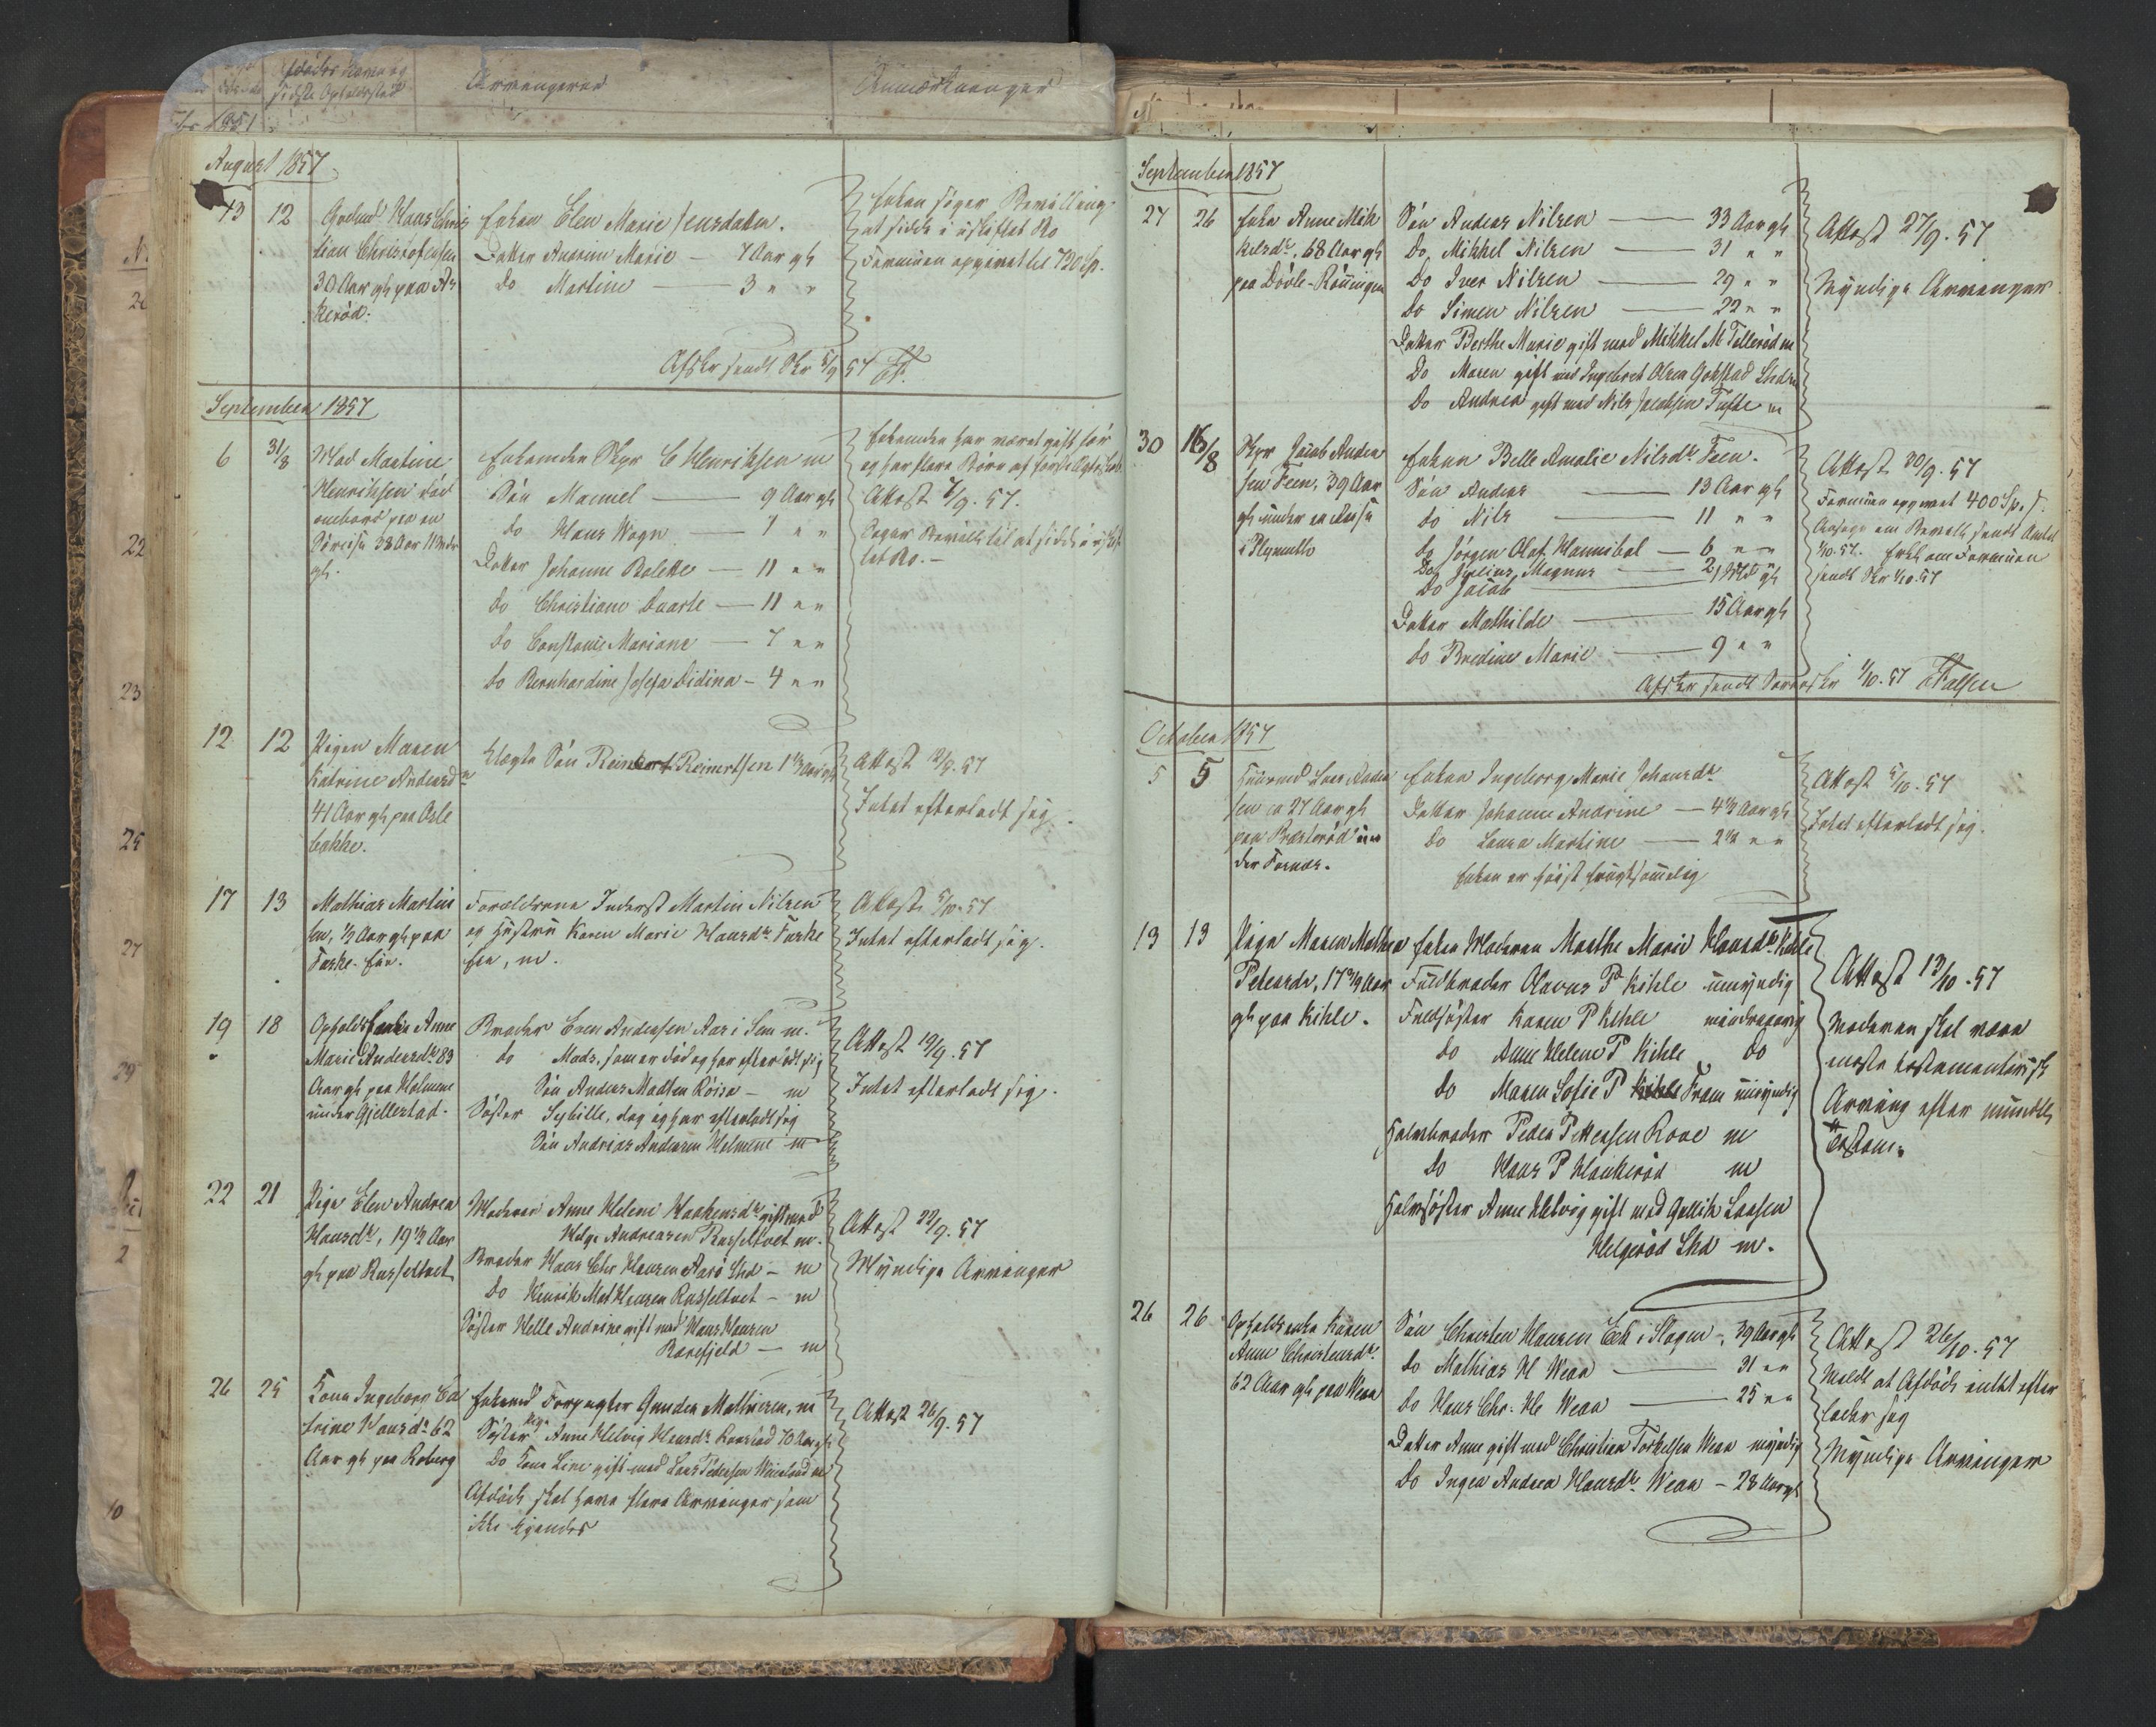 Afdødes Navn og
sidste Opholdssted
Arvingerne
Anmærkninger
August 1857
13 12 Gaardmd Hans Chris
tian Christofersen
30 Aar gl paa As
kerød.
Enken Elen Marie Jensdatter.
Datter Andrine Marie — 7 Aar gl
Do Martine — 3 " "
Enken søger Bevilling
at sidde i uskiftet Bo
Formuen opgivet til 720 Sp.
Afskr sendt Skr 5/9 57
September 1857
6 31/8 Mad Martine
Henriksen død
ombord paa en
Søreise 38 Aar 11 Mdr
gl.
Enkemden Skpr C Henriksen m
Søn Manuel — 9 Aar gl
do Hans Wogn — 7 " "
Datter Johanne Bolette — 11 " "
do Christiane Duarte — 11 " "
do Constance Mariane — 7 " "
do Bernhardine Josefa Didina — 4 " "
Enkemden har været gift før
og har flere Børn af første Ægteskab
Attest 6/9. 57.
Søger Bevilling til at sidde i uskif
tet Bo. —
12 12 Pigen Maren
Katrine Andersdr
41 Aar gl paa Asle
bakke.
Uægte Søn Reinert Reinertsen 1 1/2 Aar gl
Attest 12/9. 57
Intet efterladt sig.
17 13 Mathias Martin
sen, 1/2 Aar gl paa
Taske-Eie.
Forældrene Inderst Martin Nilsen
og Hustru Karen Marie Hansdr Taske
Eie, m.
Attest 5/10. 57
Intet efterladt sig.
19 18 Opholdsenke Anne
Marie Andersdr 83
Aar gl paa Holmene
under Gjellestad.
Broder Even Andersen Aas i Sem m.
do Mads, som er død og har efterladt sig
Søn Anders Madsen Røisa — m
Søster Sybille, dog og har efterladt sig
Søn Andreas Andersen Holmene m
Attest 19/9. 57
Intet efterladt sig.
22 21 Pige Elen Andrea
Hansdr, 19 1/2 Aar
gl paa Russeltvet
Moderen Anne Helene Haakensdr gift med
Helge Andreasen Russeltvet m.
Broder Hans Chr Hansen Aarø Shd — m
Do Henrik Mat Hansen Russeltvet — m
Søster Helle Andrine gift med Hans Hansen
Ravefjeld — m
Attest 22/9. 57
Myndige Arvinger
26 25 Kone Ingeborg Ca
trine Hansdr 62
Aar gl paa Roberg
Enkemd Forpagter Gunder Mathiesen, m
Søster Pige Anne Helvig Hansdr 70 Aar gl
Do Kone Line gift med Lars Pedersen m
Afdøde skal have flere Arvinger som
ikke kjendes
Attest 26/9. 57
September 1857
27 26 Enke Anne Mik
kelsdr, 68 Aar gl
paa Dövle-Rönningen
Søn Anders Nilsen — 33 Aar gl
Do Mikkel Nilsen — 31 " "
Do Iver Nilsen — 29 " "
Do Simen Nilsen — 22 " "
Datter Berthe Marie gift med Mikkel M Tellerød m
Do Maren gift med Ingebret Olsen Gokstad Shd m
Do Andrea gift med Nils Jacobsen Tufte m
Attest 27/9. 57
Myndige Arvinger
30 16/8 Skpr Jacob Ander
sen Feen, 39 Aar
gl under en Reise
i Plymouth
Enken Belle Amalie Nilsdr Feen.
Søn Anders — 13 Aar gl
Do Nils — 11 " "
Do Jørgen Olaf Hannibal — 6 " "
Do Julius Magnus — 2 " "
Do Jacob
Datter Mathilde — 15 Aar gl
Do Bredine Marie — 9 " "
Attest 30/9. 57
Formuen opgivet 400 Sp.
Ansøgn om Bevill sendt Amtet
1/10. 57. om Formuen
sendt Skr 1/10. 57
Afskr sendt Sorenskr 1/10. 57 Falsen
October 1857
5 5 Huusmd Lars Ander
sen ca 27 Aar gl
paa Præsterød un
der
Enken Ingeborg Marie Johansdr
Datter Johanne Andrine — 4 1/2 Aar gl
Do Laura Martine — 2 1/2 " "
Enken er høist frugtsommelig
Attest 5/10. 57
Intet efterladt sig.
13 13 Pige Maren Mathea
Petersdr, 17 3/4 Aar
gl paa Kihle.
Enken Moderen Marthe Marie Hansdr Kihle
Fuldbroder Anders P Kihle umyndig
Fuldsøster Karen P Kihle mindreaarig
Do Anne Helene P Kihle do
Do Maren Sofie P Kihle Fram umyndig
Halvbroder Peder Pettersen Roae m
Do Hans P Haukerød m
Halvsøster Anne Helvig gift med Gullik Larsen
Helgerød Shd m.
Attest 13/10. 57
Moderen skal være
meste testamentarisk
Arving efter mundtl
Testam.
26 26 Opholdsenke Karen
Anne Christensdr.
62 Aar gl paa Wean
Søn Christen Hansen Eek i Slagen — 39 Aar gl
Do Mathias H Wean — 31 " "
Do Hans Chr. H Wean — 25 " "
Datter Anne gift med Christian Torkelsen Wean myndig
Do Inger Andrea Hansdr. Wean — 28 Aar gl
Attest 26/10. 57
Meldt at Afdøde intet efter
lader sig
Myndige Arvinger